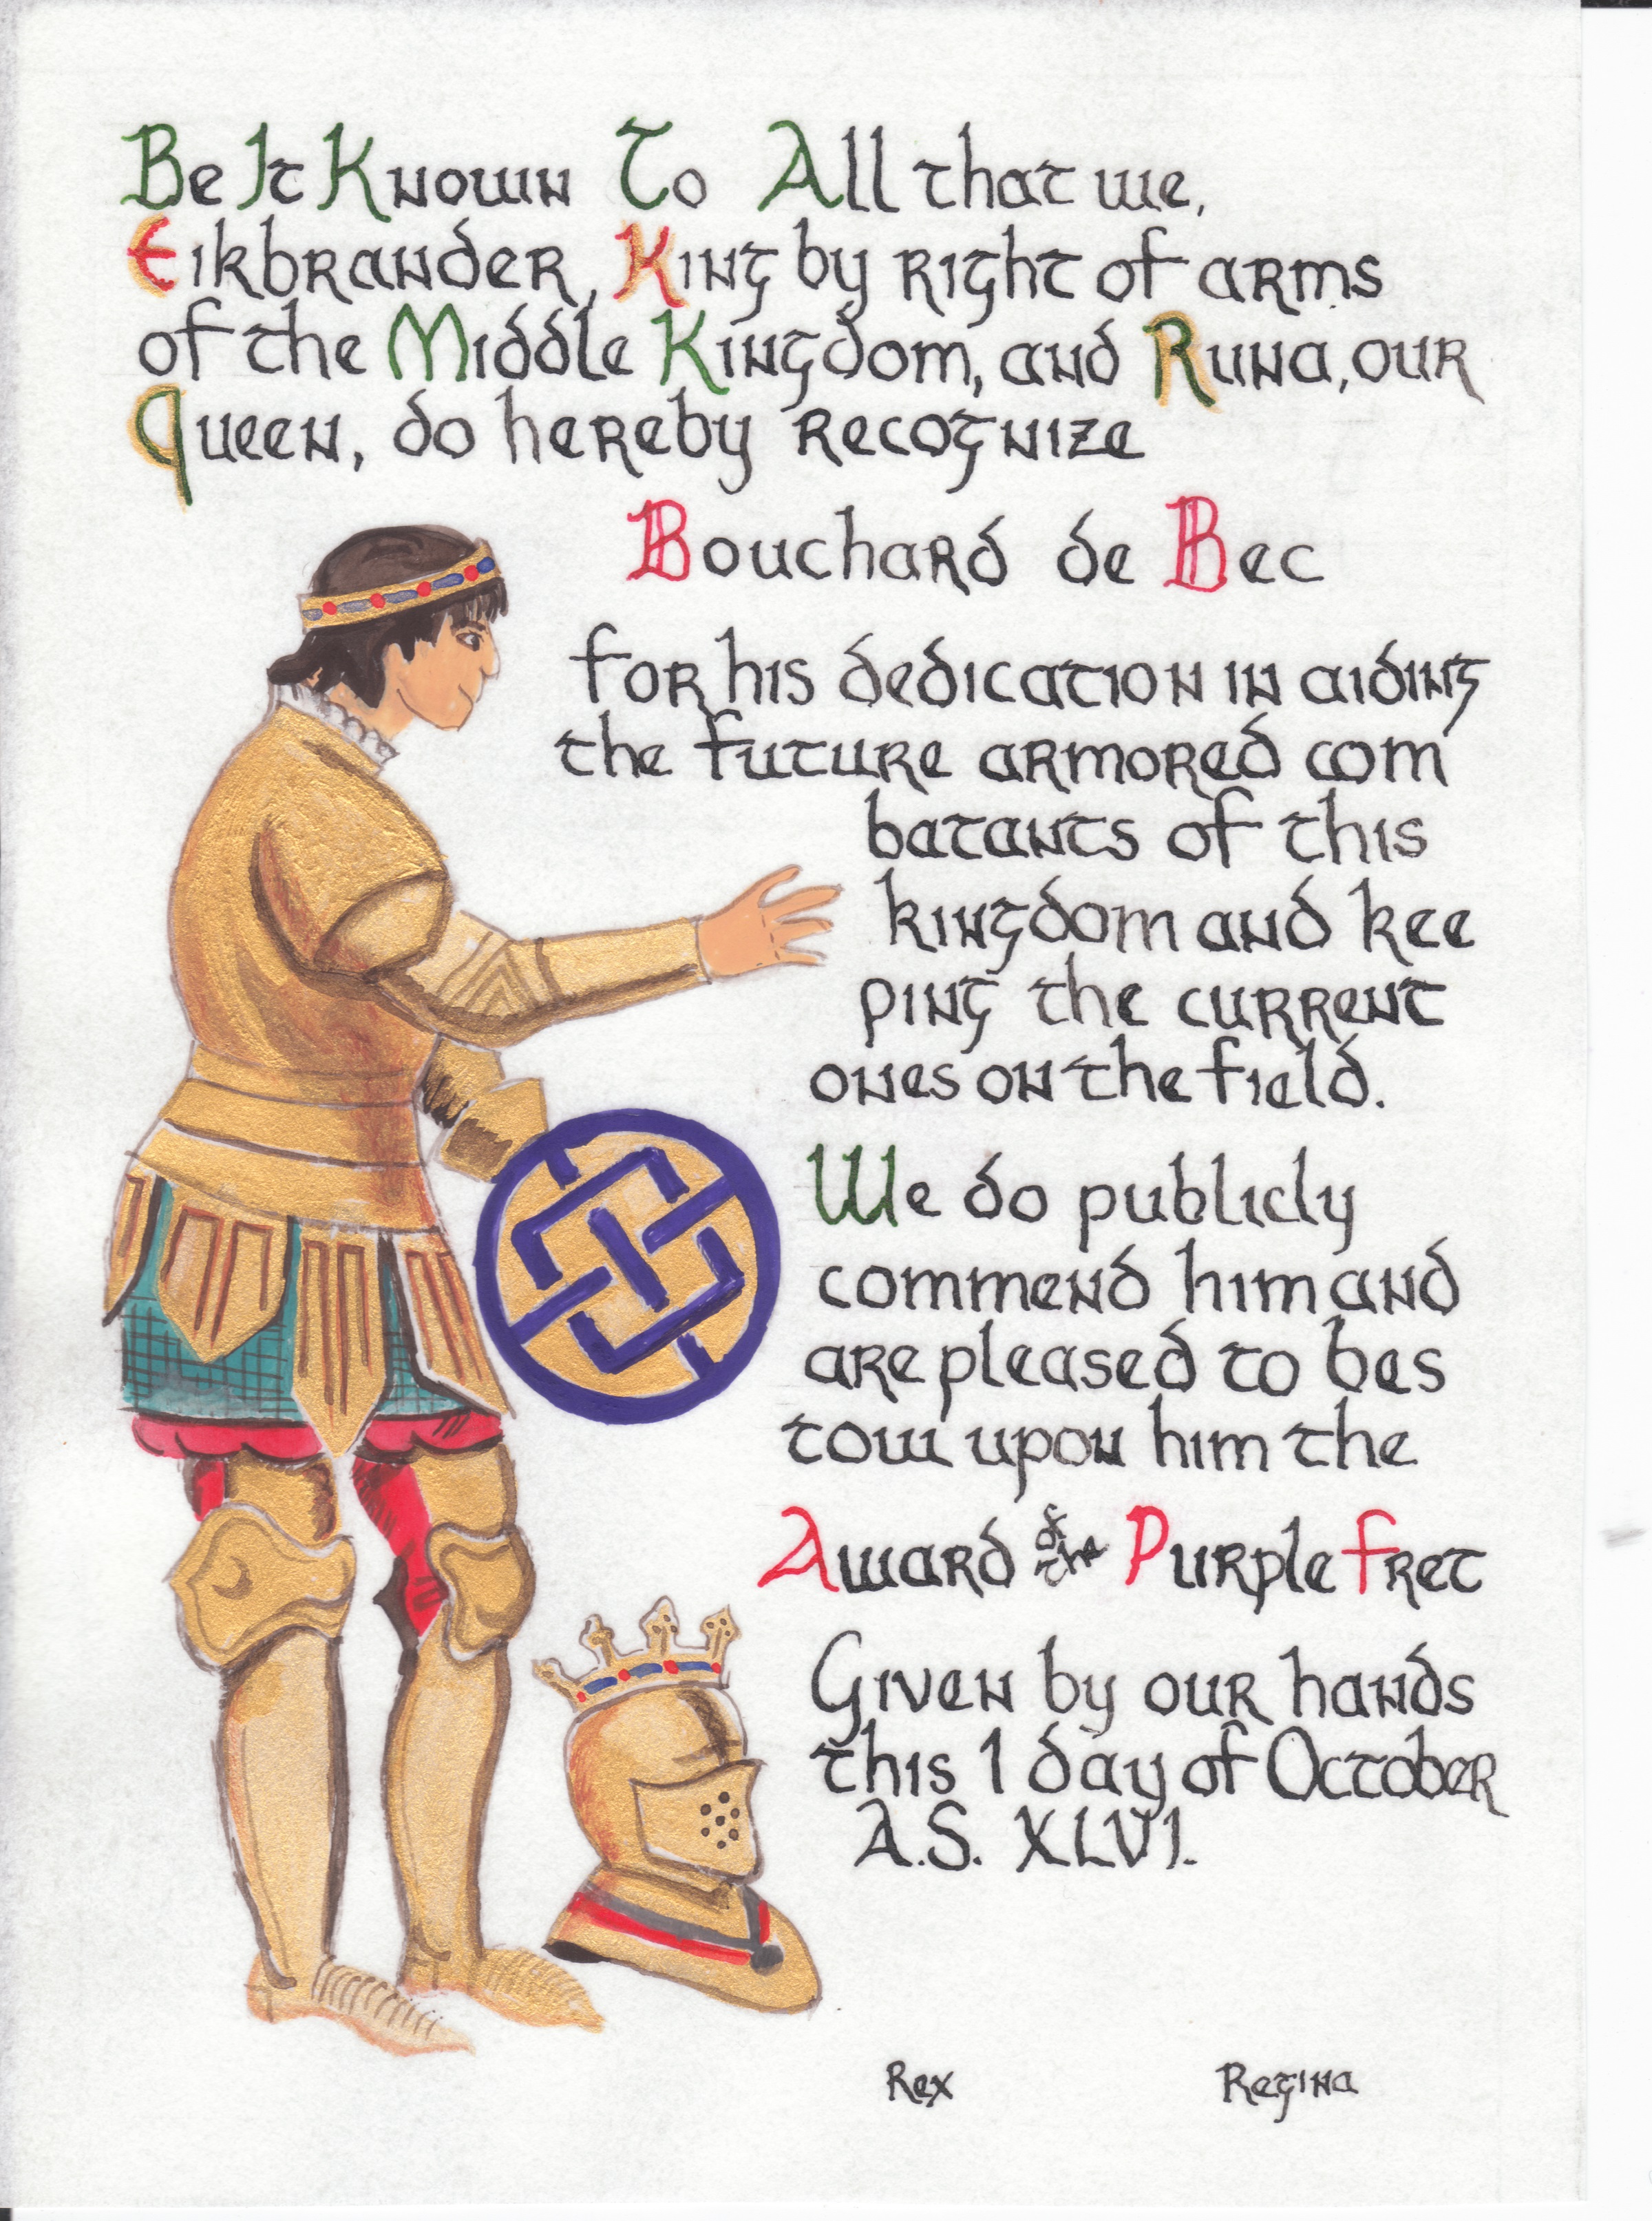 Be It Known To All that we,
Eikbrander, King by right of arms
of the Middle Kingdom, and Runa, our
Queen, do hereby recognize
Bouchard de Bec
for his dedication in aiding
the future armored com
batants of this
kingdom and kee
ping the current
ones on the field.
We do publicly
commend him and
are pleased to bes
tow upon him the
Award of the Purple Fret
Given by our hands
this 1 day of October
A.S. XLVI.
Rex Regina